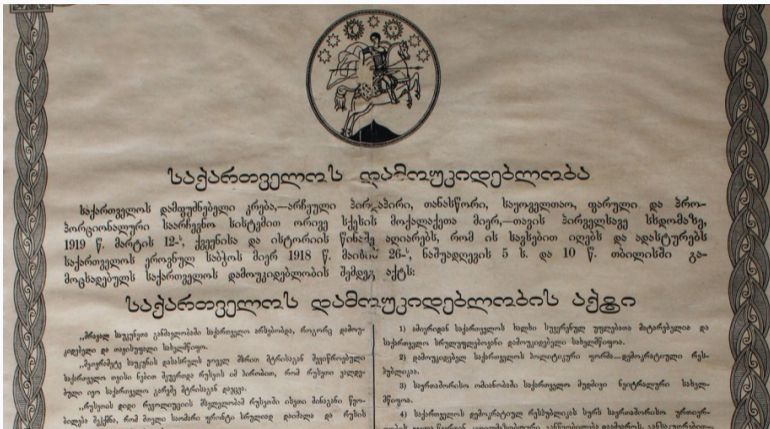 საქართველოს დამოუკიდებლობა
საქართველოს დამფუძნებელი კრება,—არჩეული პირდაპირი, თანასწორი, საყოველთაო, ფარული და პრო-
პორციონალური საარჩევნო სისტემით ორივე სქესის მოქალაქეთა მიერ,—თავის პირველსავე სხდომაზე,
1919 წ. მარტის 12-ს, ქვეყნისა და ისტორიის წინაშე აღიარებს, რომ ის სავსებით იღებს და ადასტურებს
საქართველოს ეროვნულ საბჭოს მიერ 1918 წ. მაისის 26-ს, ნაშუადღევის 5 ს. და 10 წ. თბილისში გა-
მოცხადებულ საქართველოს დამოუკიდებლობის შემდეგ აქტს:
საქართველოს დამოუკიდებლობის აქტი
„მრავალ საუკუნეთა განმავლობაში საქართველო არსებობდა, როგორც დამოუ-
კიდებელი და თავისუფალი სახელმწიფო.
„მეთვრამეტე საუკუნის დასასრულს ყოველ მხრით მტრისაგან შევიწროებული
საქართველო თვისი ნებით შეუერთდა რუსეთს იმ პირობით, რომ რუსეთი ვალდე-
ბული იყო საქართველო გარეშე მტრისაგან დაეცვა.
„რუსეთის დიდი რევოლიუციის მსვლელობამ რუსეთში ისეთი შინაგანი წყო-
ბილება შექმნა, რომ მთელი საომარი ფრონტი სრულიად დაიშალა და რუსის
1) ამიერიდან საქართველოს ხალხი სუვერენულ უფლებათა მატარებელია და
საქართველო სრულუფლებოვანი დამოუკიდებელი სახელმწიფოა.
2) დამოუკიდებელ საქართველოს პოლიტიკური ფორმა—დემოკრატიული რეს-
პუბლიკაა.
3) საერთაშორისო ომიანობაში საქართველო მუდმივი ნეიტრალური სახელ-
მწიფოა.
4) საქართველოს დემოკრატიულ რესპუბლიკას სურს საერთაშორისო ურთიერ-